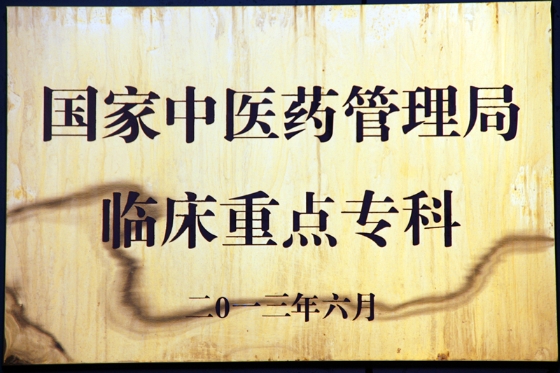 国家中医药管理局
临床重点专科
二0一三年六月